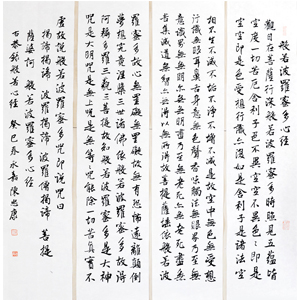 般若波羅蜜多心經
觀自在菩薩行深般若波羅蜜多時照見五蘊皆
空度一切苦厄舍利子色不異空空不異色色即是
空空即是色受想行識亦復如是舍利子是諸法空
相不生不滅不垢不淨不增不減是故空中無色無受想
行識無眼耳鼻舌身意無色聲香味觸法無眼界乃至無
意識界無無明亦無無明盡乃至無老死亦無老死盡無
苦集滅道無智亦無得以無所得故菩提薩埵依般若波
羅蜜多故心無罣礙無罣礙故無有恐怖遠離顛倒
夢想究竟涅槃三世諸佛依般若波羅蜜多故得
阿耨多羅三藐三菩提故知般若波羅蜜多是大神
咒是大明咒是無上咒是無等等咒能除一切苦真實不
虛故說般若波羅蜜多咒即說咒曰
揭諦揭諦 波羅揭諦 波羅僧揭諦 菩提
薩婆訶 般若波羅蜜多心經
般若心經 癸巳冬永嘉陳忠康